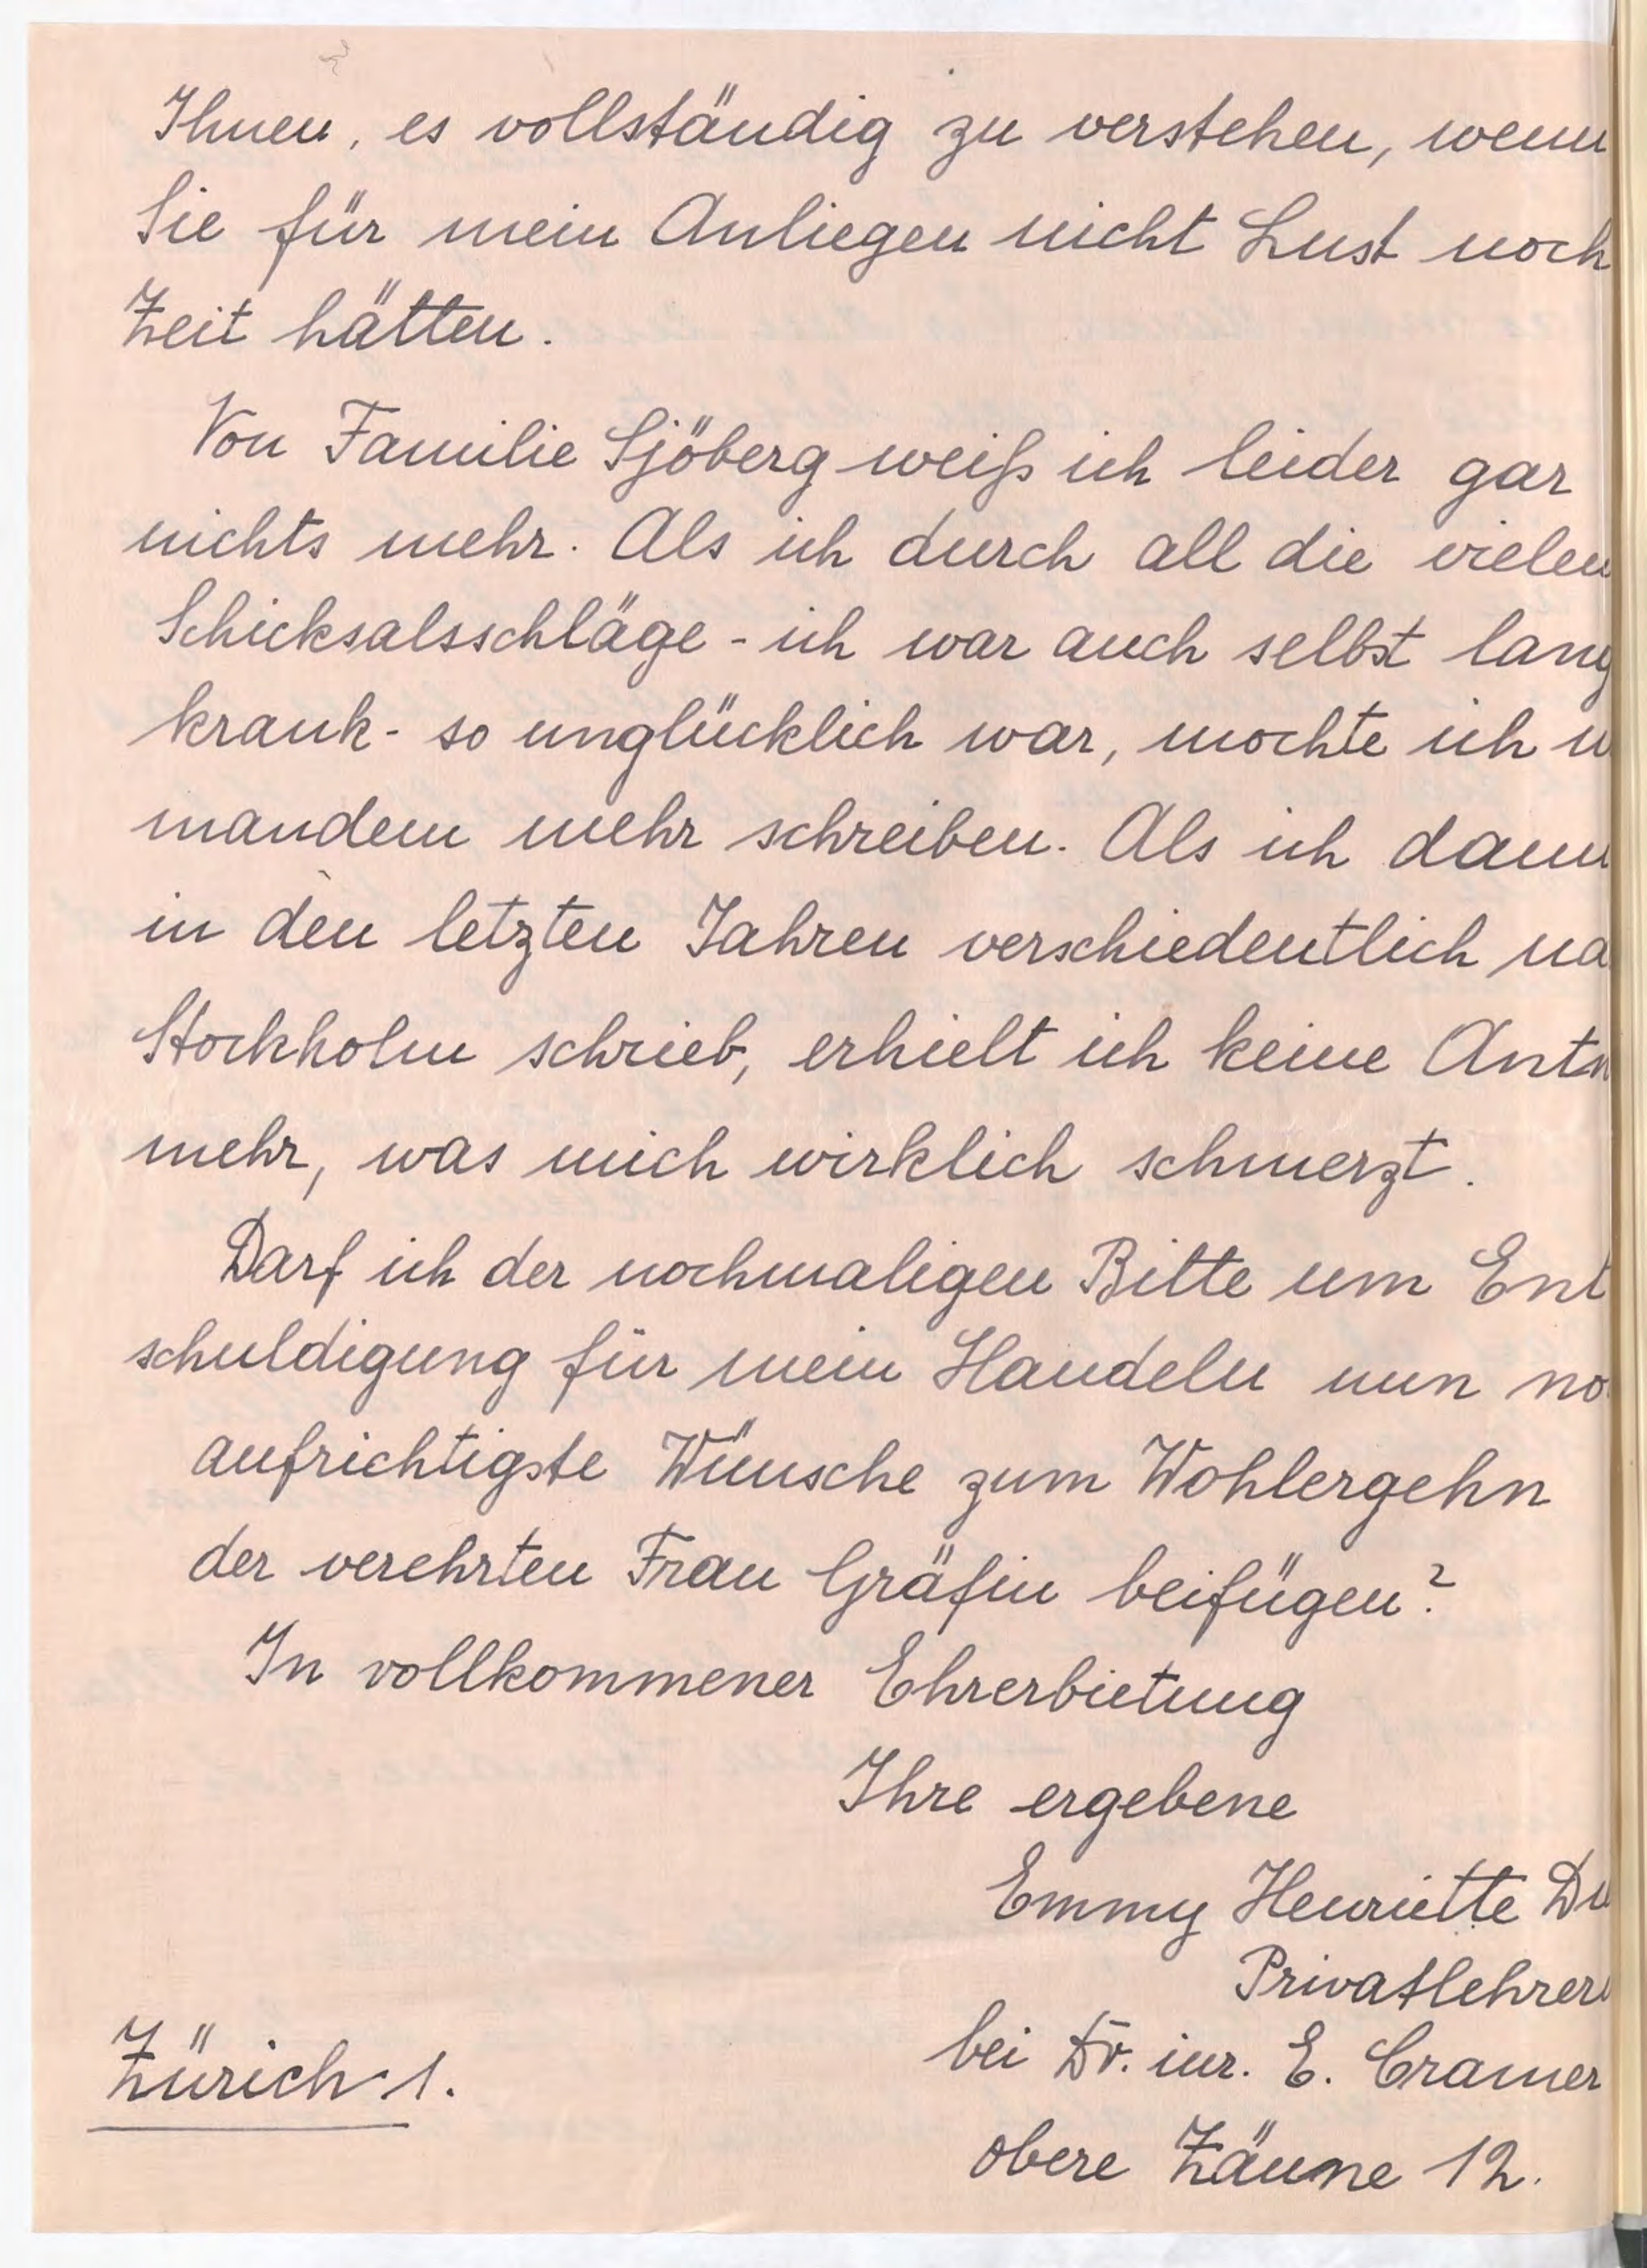 Ihnen, es vollständig zu verstehen, wenn
Sie für mein Anliegen nicht Lust noch
Zeit hätten.
Von Familie Sjöberg weiß ich leider gar
nichts mehr. Als ich durch all die vielen
Schicksalsschläge - ich war auch selbst lang
krank - so unglücklich war, mochte ich
mandem mehr schreiben. Als ich dann
in den letzten Jahren verschiedentlich na
Stockholm schrieb, erhielt ich keine Antw
mehr, was mich wirklich schmerzt.
Darf ich der nochmaligen Bitte um Ent
schuldigung für mein Handeln nun no
aufrichtigste Wünsche zum Wohlergehn
der verehrten Frau Gräfin beifügen?
In vollkommener Ehrerbietung
Ihre ergebene
Emmy Henriette
Privatlehrer
bei Dr. iur. E. Cramer
Zürich 1.
obere Zäune 12.